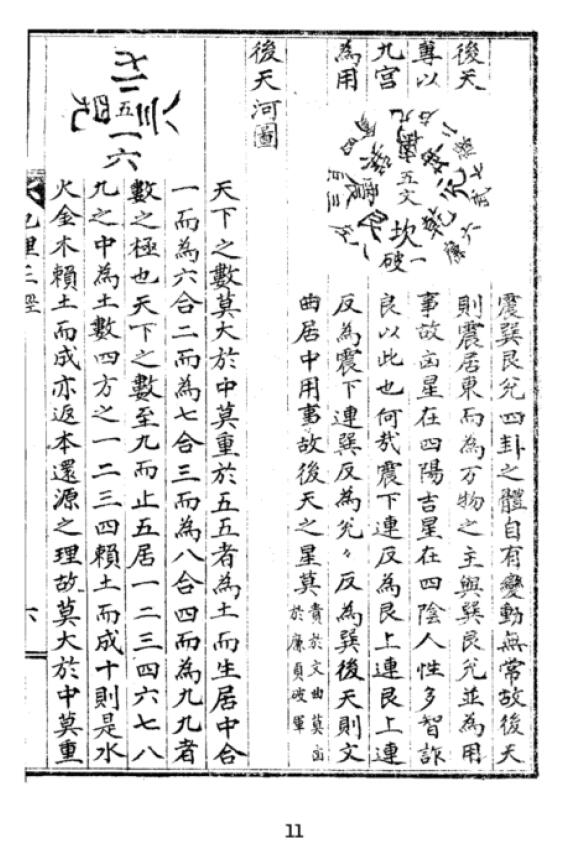 後天
尊以
九宮
為用
九右
離
二
坤
七
兌
武
六
廉
乾
坎
一
破
八
艮
三
震
四
巽
五文
震巽艮兌四卦之體自有變動無常故後天
則震居東而為万物之主與巽艮兌並為用
事故凶星在四陽吉星在四陰人性多智詐
良以此也何㢤震下連反為艮上連艮上連
反為震下連巽反為兌〻反為巽後天則文
曲居中用事故後天之星莫
貴於文曲莫凶
於廉貞破軍
後天河圖
七二
八三五四九
一六
天下之數莫大於中莫重於五五者為土而生居中合
一而為六合二而為七合三而為八合四而為九九者
數之極也天下之數至九而止五居一二三四六七八
九之中為土數四方之一二三四賴土而成十則是水
火金木賴土而成亦返本還源之理故莫大於中莫重
六
11